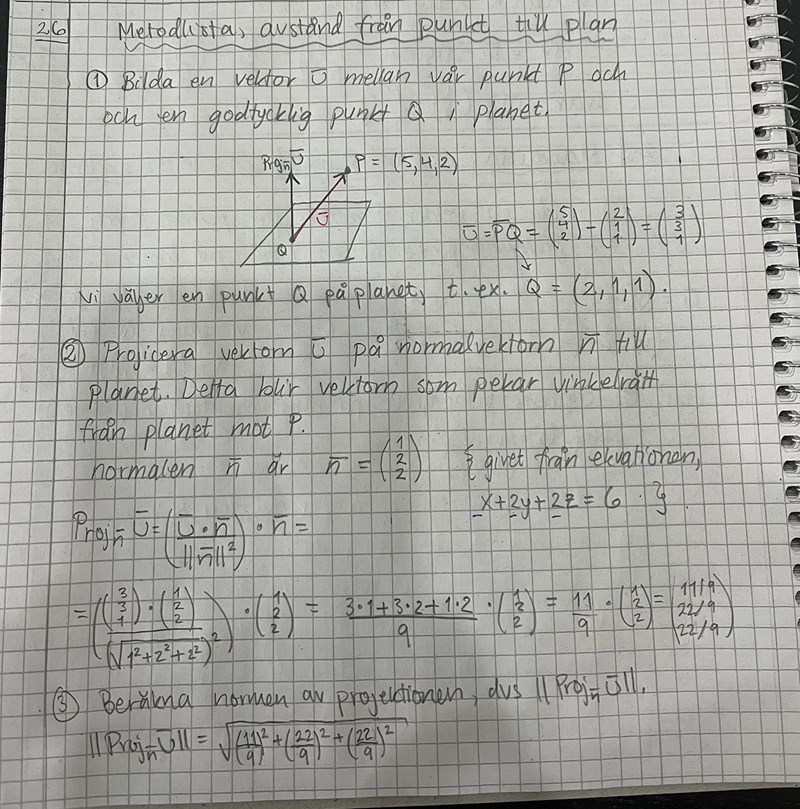 26 Metodlista, avstånd från punkt till plan
① Bilda en vektor ū mellan vår punkt P och
och en godtycklig punkt Q i planet.
Proj_n̄ ū P = (5,4,2)
ū
Q
ū = P̄Q = (5 4 2) - (2 1 1) = (3 3 1)
Vi väljer en punkt Q på planet, t.ex. Q = (2,1,1).
② Projicera vektorn ū på normalvektorn n̄ till
planet. Detta blir vektorn som pekar vinkelrätt
från planet mot P.
normalen n̄ är n̄ = (1 2 2) { givet från ekvationen,
x+2y+2z = 6 . }
Proj_n̄ ū = (ū · n̄ / ||n̄||²) · n̄ =
= ((3 3 1) · (1 2 2) / (√1²+2²+2²)²) · (1 2 2) = 3·1+3·2+1·2 / 9 · (1 2 2) = 11/9 · (1 2 2) = (11/9 22/9 22/9)
③ Beräkna normen av projektionen, dvs ||Proj_n̄ ū||.
||Proj_n̄ ū|| = √(11/9)² + (22/9)² + (22/9)²